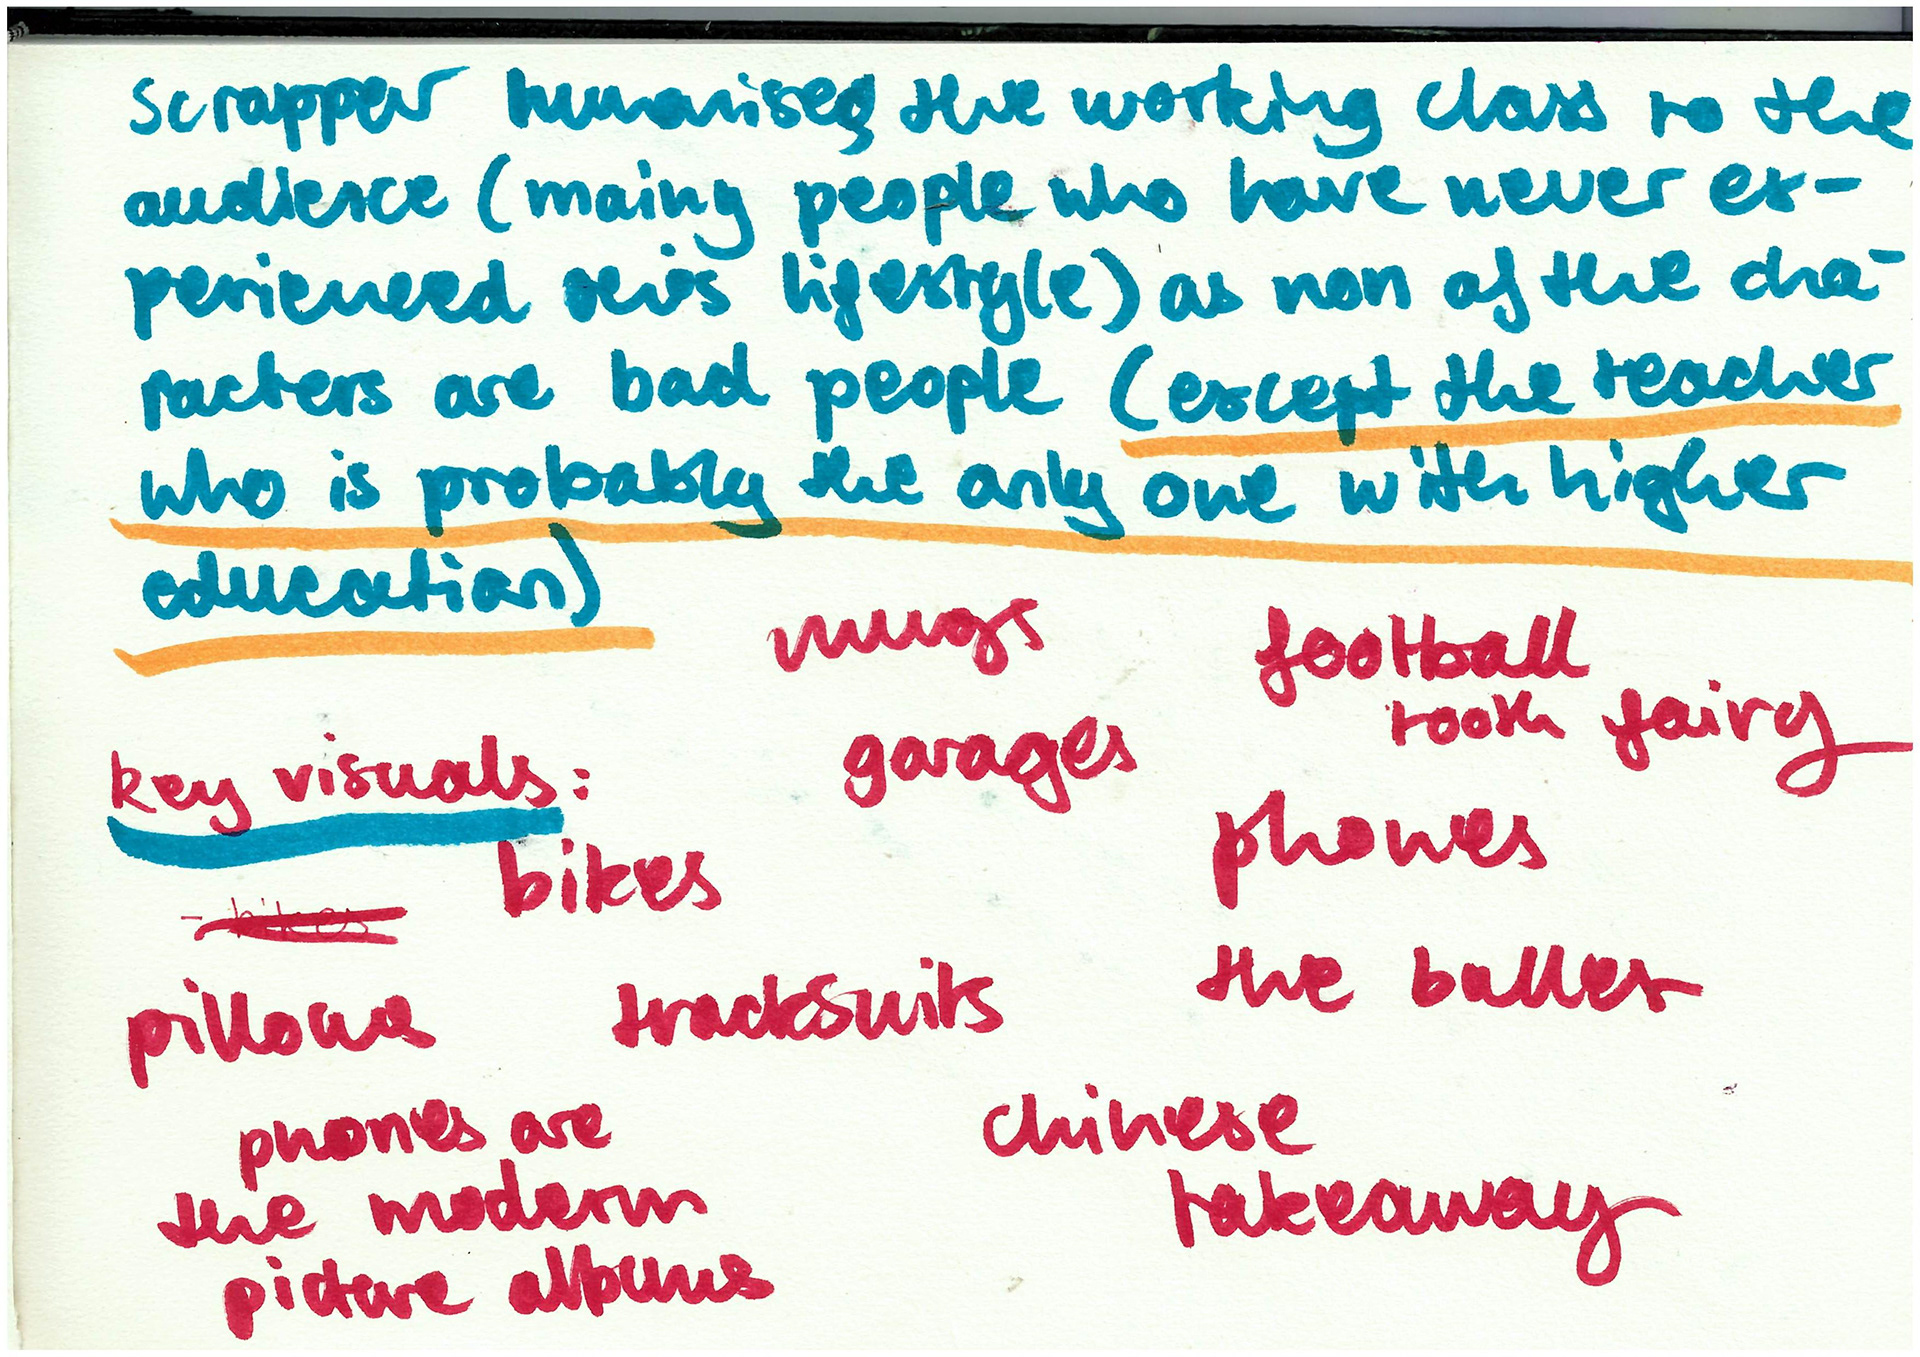 Scrapper humanises the working class to the
audience (mainy people who have never ex-
perienced this lifestyle) as non of the cha-
racters are bad people (except the teacher
who is probably the only one with higher
education)
mugs
football
tooth fairy
garages
key visuals:
phones
bikes
- bikes
the bullet
pillows
tracksuits
phones are
the modern
picture albums
chinese
takeaway